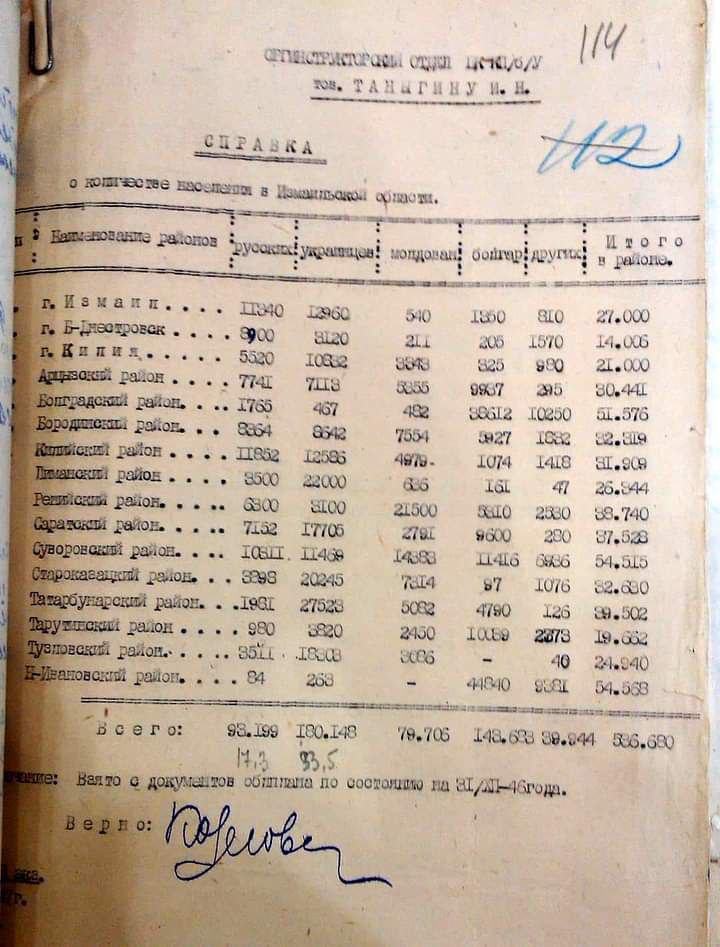 114
ОРГИНСТРУКТОРСКИЙ ОТДЕЛ ЦК КП/б/У
тов. ТАНЫГИНУ И. Н.
112
СПРАВКА
о количестве населения в Измаильской области.
Наименование районов русских украинцев молдован болгар других Итого в районе.
г. Измаил.... 11340 12960 540 1350 810 27.000
г. Б-Днестровск.... 8900 3120 211 205 1570 14.006
г. Килия..... 5520 10832 3343 325 980 21.000
Арцызский район.... 7741 7113 5355 9937 295 30.441
Болградский район.... 1765 467 482 38612 10250 51.576
Бородинский район... 8364 8642 7554 5927 1832 32.319
Килийский район.... 11852 12586 4979 1074 1418 31.909
Лиманский район.... 3500 22000 636 161 47 26.344
Ренийский район.... 6300 3100 21500 5310 2530 38.740
Саратский район.... 7152 17705 2791 9600 280 37.528
Суворовский район.... 10311 11469 14383 11416 6936 54.515
Староказацкий район... 3898 20245 7314 97 1076 32.630
Татарбунарский район... 1981 27523 5082 4790 126 39.502
Тарутинский район.... 980 3820 2450 10039 2373 19.662
Тузловский район.... 3511 18303 3086 - 40 24.940
Н-Ивановский район.... 84 263 - 44840 9381 54.568
Всего: 93.199 180.148 79.706 143.683 39.944 536.680
17,3 33,5
Взято с документов облплана по состоянию на 31/XII-46года.
Верно: